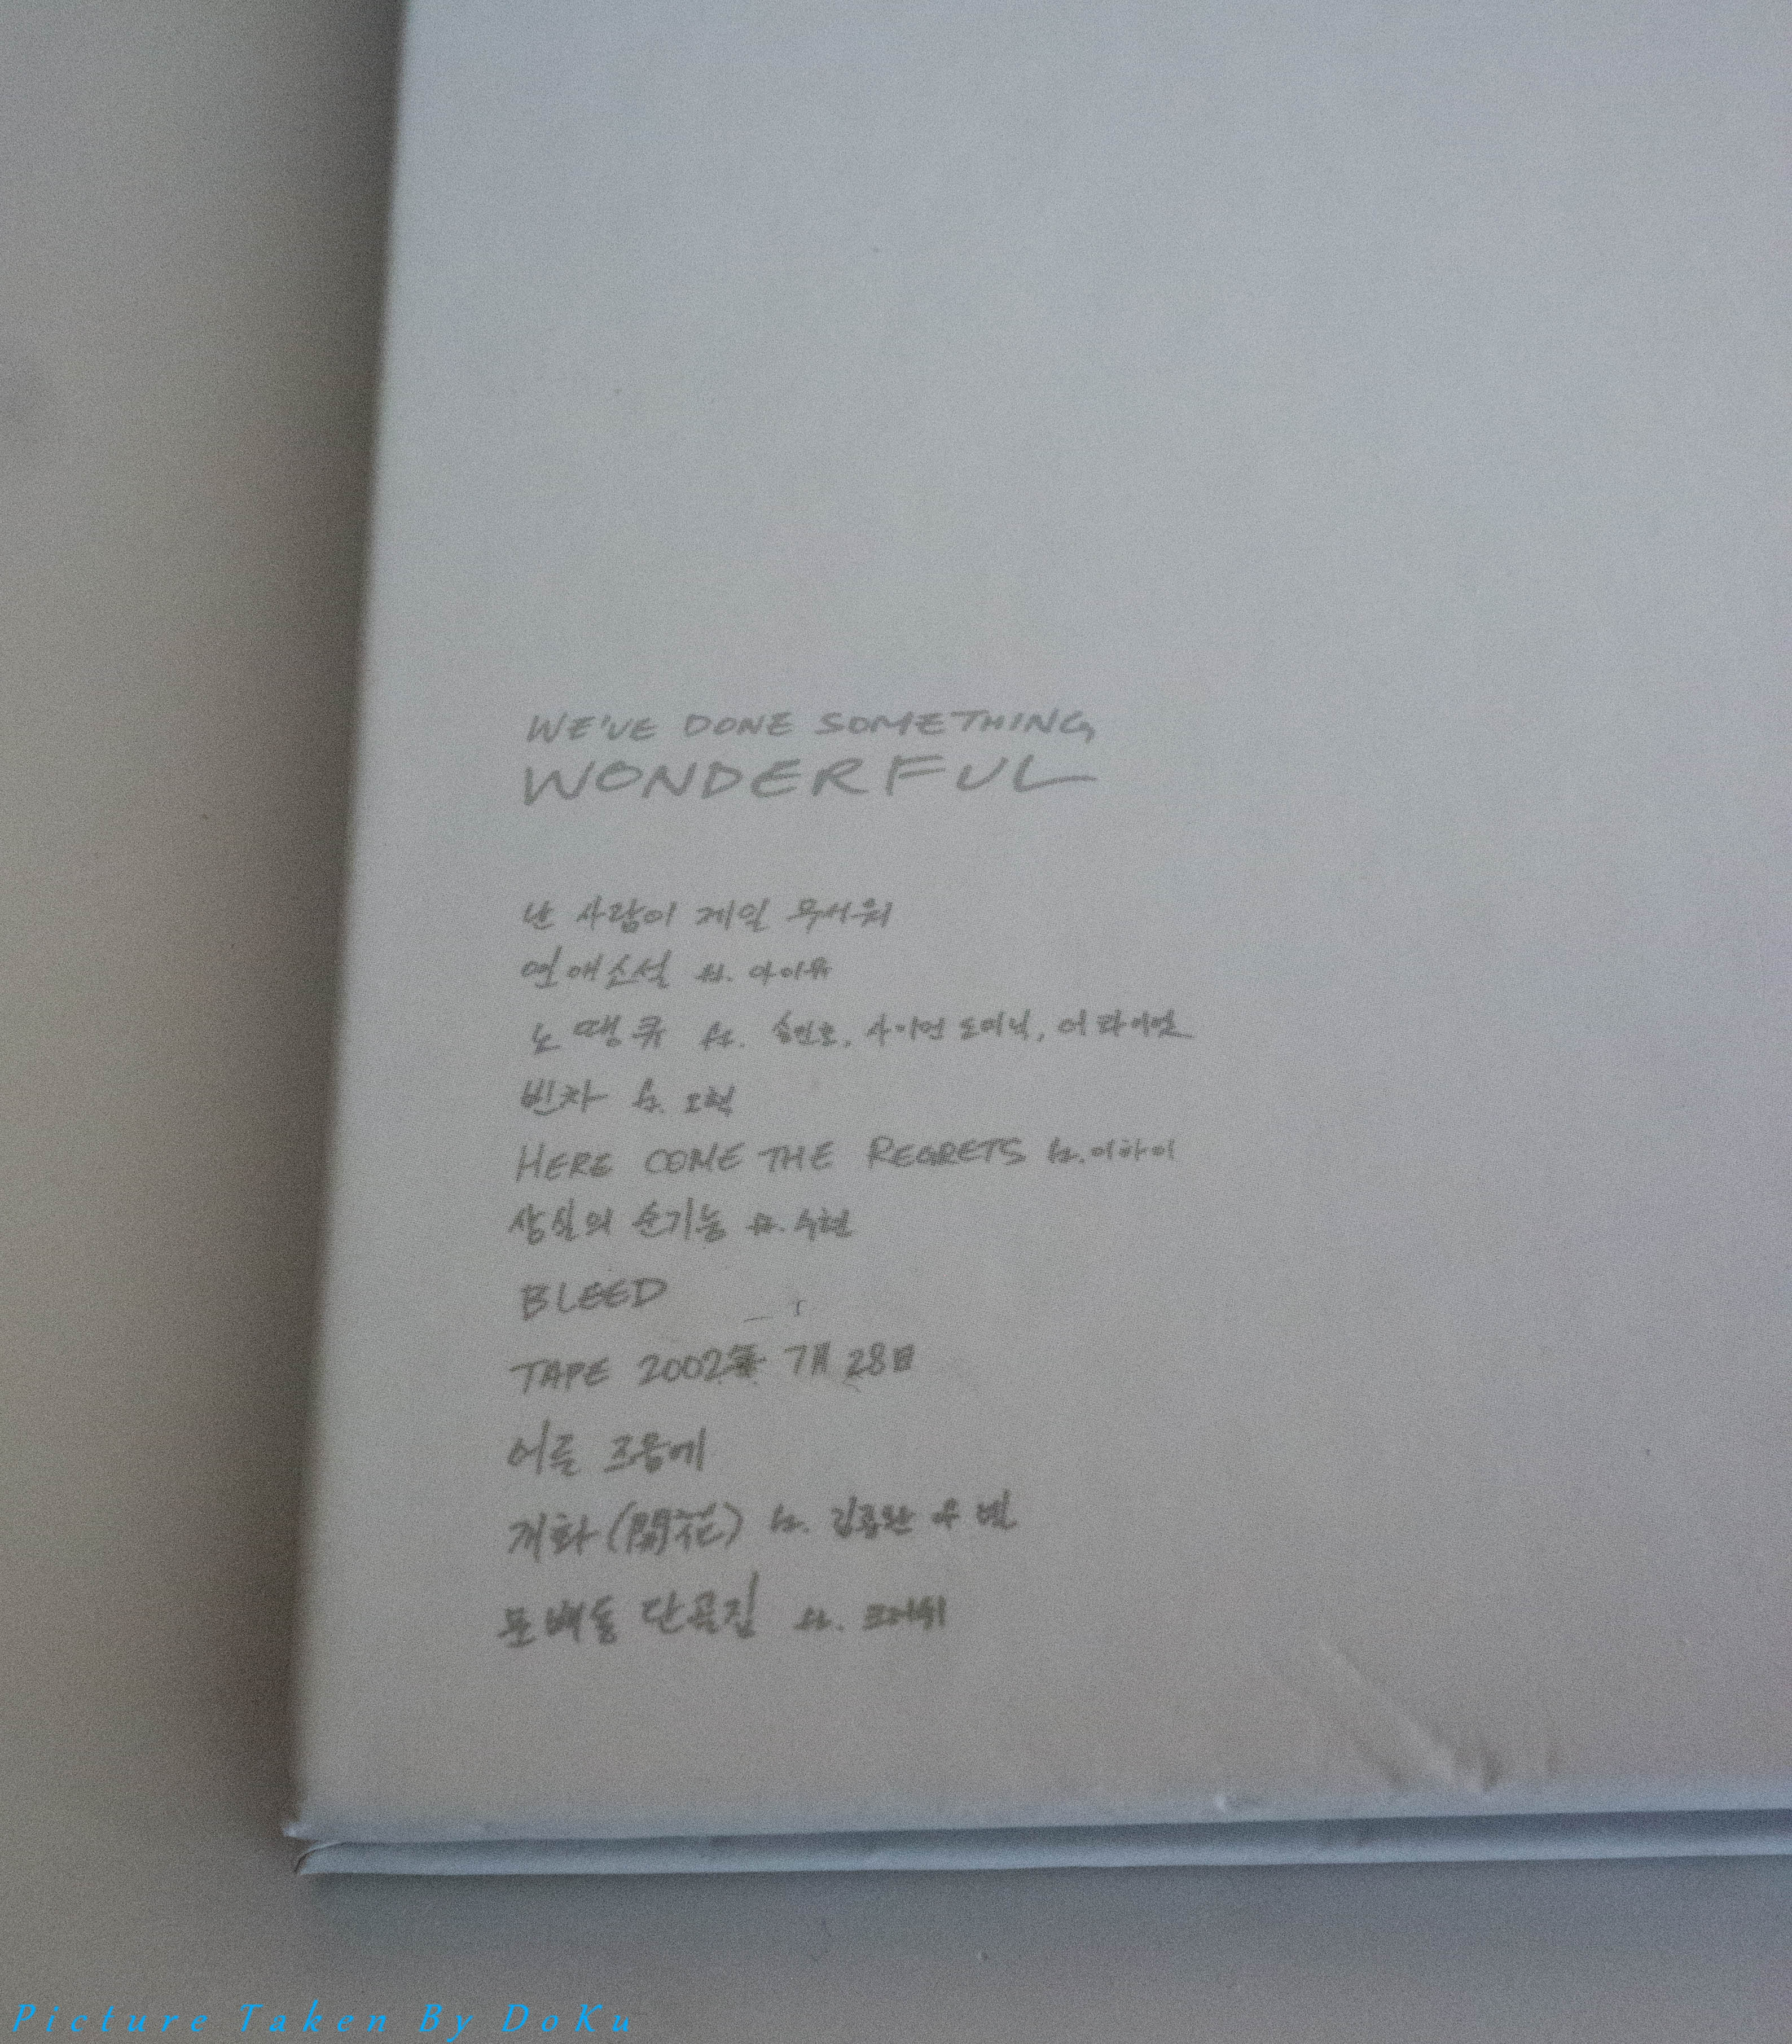 WE'VE DONE SOMETHING
WONDERFUL
난 사람이 제일 무서워
연애소설 ft. 아이유
노땡큐 ft. 송민호, 사이먼 도미닉, 더 콰이엇
빈차 ft. 오혁
HERE COME THE REGRETS ft. 이하이
상실의 순기능 ft. 수현
BLEED
TAPE 2002年 7月 28日
어른 즈음에
개화(開花) ft. 김종완 of 넬
문배동 단골집 ft. 크러쉬
Picture Taken By DoKu